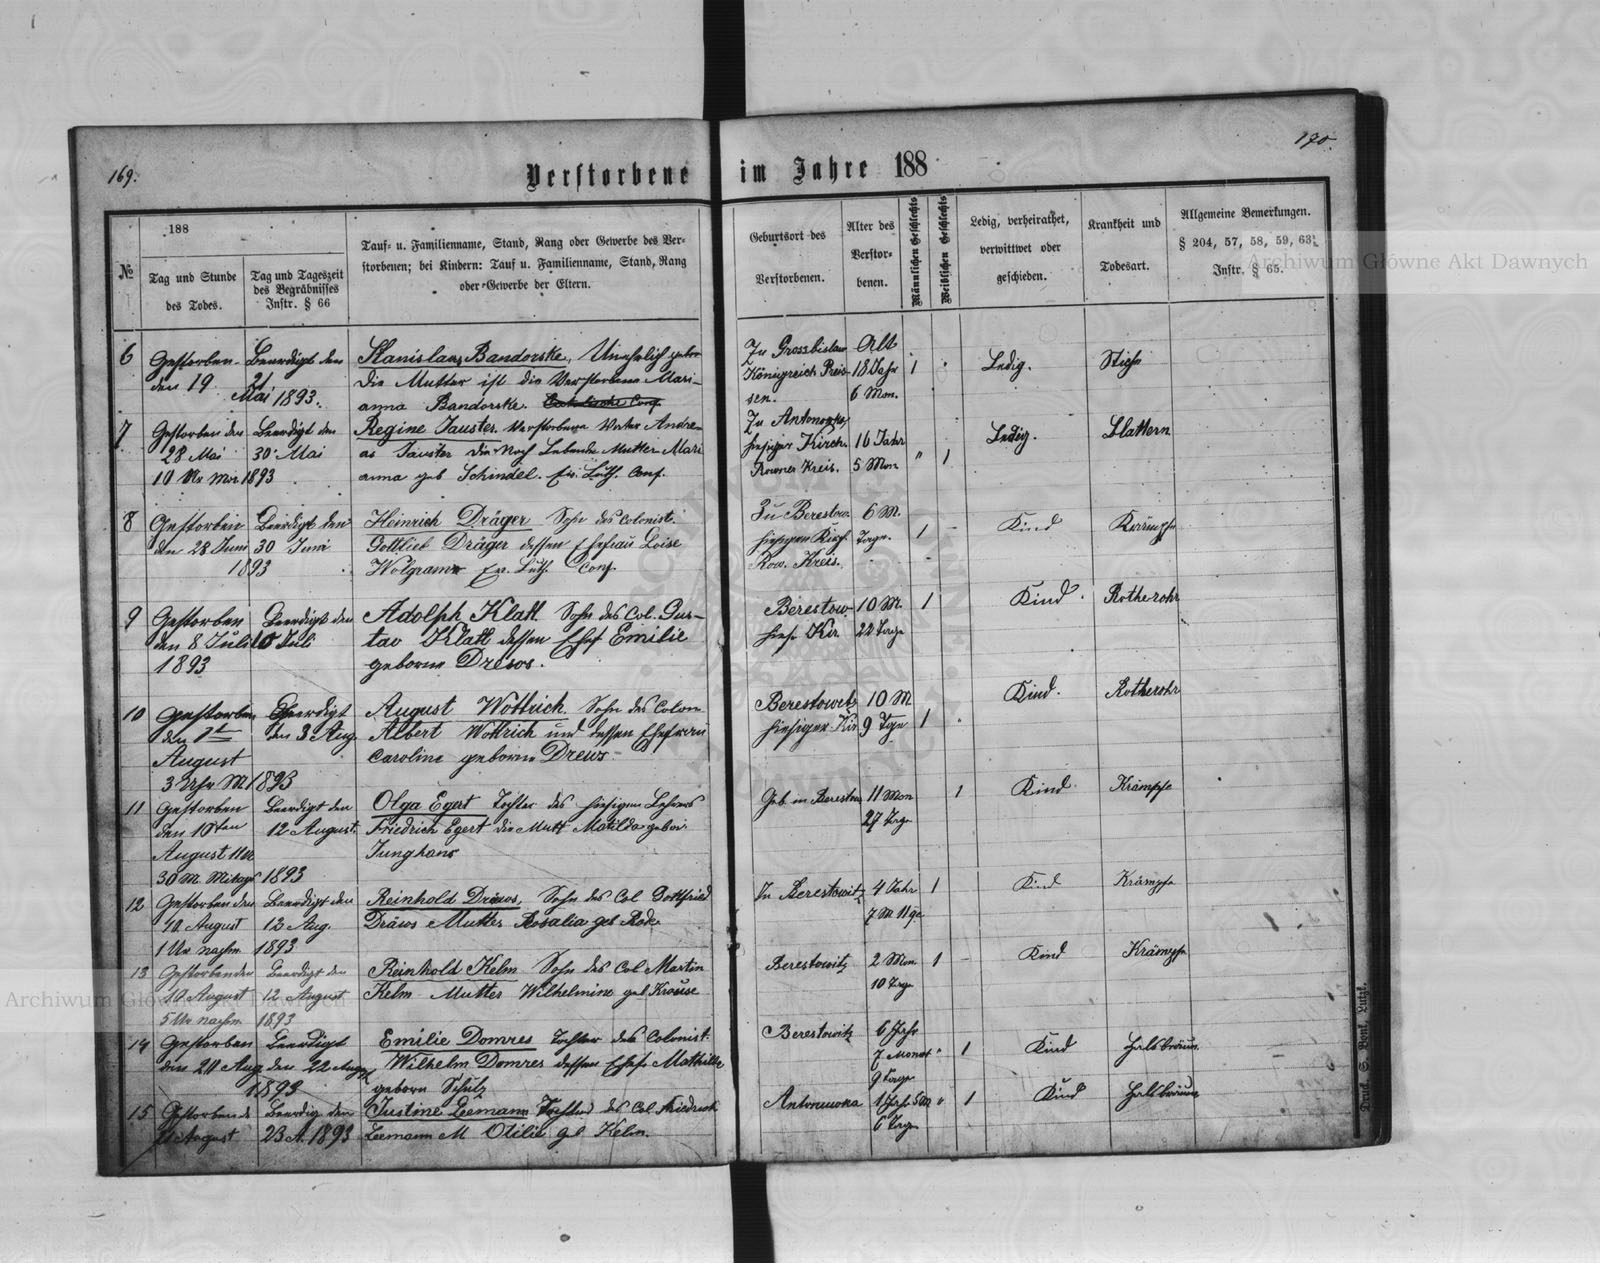 169.
170.
Verstorbene im Jahre 188
№
188
Tag und Stunde
des Todes.
Tag und Tageszeit
des Begräbnisses
Instr. § 66
Tauf- u. Familienname, Stand, Rang oder Gewerbe des Ver-
storbenen; bei Kindern: Tauf u. Familienname, Stand, Rang
oder Gewerbe der Eltern.
Geburtsort des
Verstorbenen.
Alter des
Verstor-
benen.
Männlichen Geschlechts
Weiblichen Geschlechts
Ledig, verheirathet,
verwittwet oder
geschieden.
Krankheit und
Todesart.
Allgemeine Bemerkungen.
§ 204, 57, 58, 59, 63,
Instr. § 65.
Archiwum Główne Akt Dawnych
6
Gestorben
den 19
Beerdigt den
21
Mai 1893.
Stanislaus Bandorske, Unehelich
Die Mutter ist die Verstorbene Mari-
anna Bandorske.
Zu Grossbislaw
Königreich Preis-
sen.
Alt
18 Jahr
6 Mon.
1
Ledig.
Stiche
7
Gestorben den
28 Mai
10 Ur Mor.
Beerdigt den
30 Mai
1893
Regine Jauster. Verstorbene Vater Andre-
as Jauster die Noch Lebende Mutter Mari
anna geb Schindel. Ev. Luth. Conf.
Zu
hiesiger Kirch.
Rowner Kreis.
16 Jahr
5 Mon
" 1
Ledig.
Blattern
8
Gestorben
den 28 Juni
Beerdigt den
30 Juni
1893
Heinrich Dräger Sohn des Colonist.
Gottlieb Dräger dessen Ehefrau Loise
Wolgramm Ev. Luth. Conf.
Zu Berestow.
hiesigen Kirch.
Row. Kreis.
6 M.
Tage.
1
Kind
Krämpfe
9
Gestorben
den 8 Juli
1893
Beerdigt den
10 Juli
Adolph Klatt. Sohn des Col. Gus-
tav Klatt dessen Ehef Emilie
geborne Drews.
Berestow
hies Kir
10 M.
22 Tage
1
Kind.
Rotherohr
10
Gestorben
den 1t
August
3 Uhr M 1893
Beerdigt
den 3 Aug.
August Wottrich. Sohn des Colon
Albert Wottrich und dessen Ehefrau
Caroline geborne Drews
Berestowetz
hiesiger Kir
10 M
9 Tge
1
Kind.
Rotherohr
11
Gestorben
den 10ten
August 11 U
30 M. Mitags 1893
Beerdigt den
12 August.
Olga Egert Tochter des hiesigen Lehrers
Friedrich Egert die Mutt Matilda
Junghans
Geb in Berestow
11 Mon
27 Tage
1
Kind
Krämpfe
12
Gestorben den
10 August
1 Ur nachm.
Beerdigt den
12 Aug.
1893
Reinhold Dräws, Sohn des Col Gottfried
Dräws Mutter Rosalia geb Rode
In Berestowitz
4 Jahr
7 M
1
Kind
Krämpfe
13
Gestorben den
10 August
5 Ur nachm.
Beerdigt den
12 August
1893
Reinhold Kelm Sohn des Col Martin
Kelm Mutter Wilhelmine geb Krause
Berestowitz
2 Mon.
10 Tage
1
Kind
Krämpfe
14
Gestorben
den 20 Aug
Beerdigt
den 22 Aug
1893
Emilie Domres Tochter des Colonist.
Wilhelm Domres dessen Ehef. Mathilde
geborn Schulz
Berestowitz
6 Jahr
7 Monat
9 Tage
1
Kind
Halsbräune
15
Gestorben d.
21 August
Beerdig den
23 A. 1893
Justine Leemann Tochter des Col. Friedrich
Leemann M Otilie geb Kelm.
Antonuwka
1 Jahr 5 M
6 Tage
1
Kind
Halsbräune
Archiwum Główne Akt Dawnych